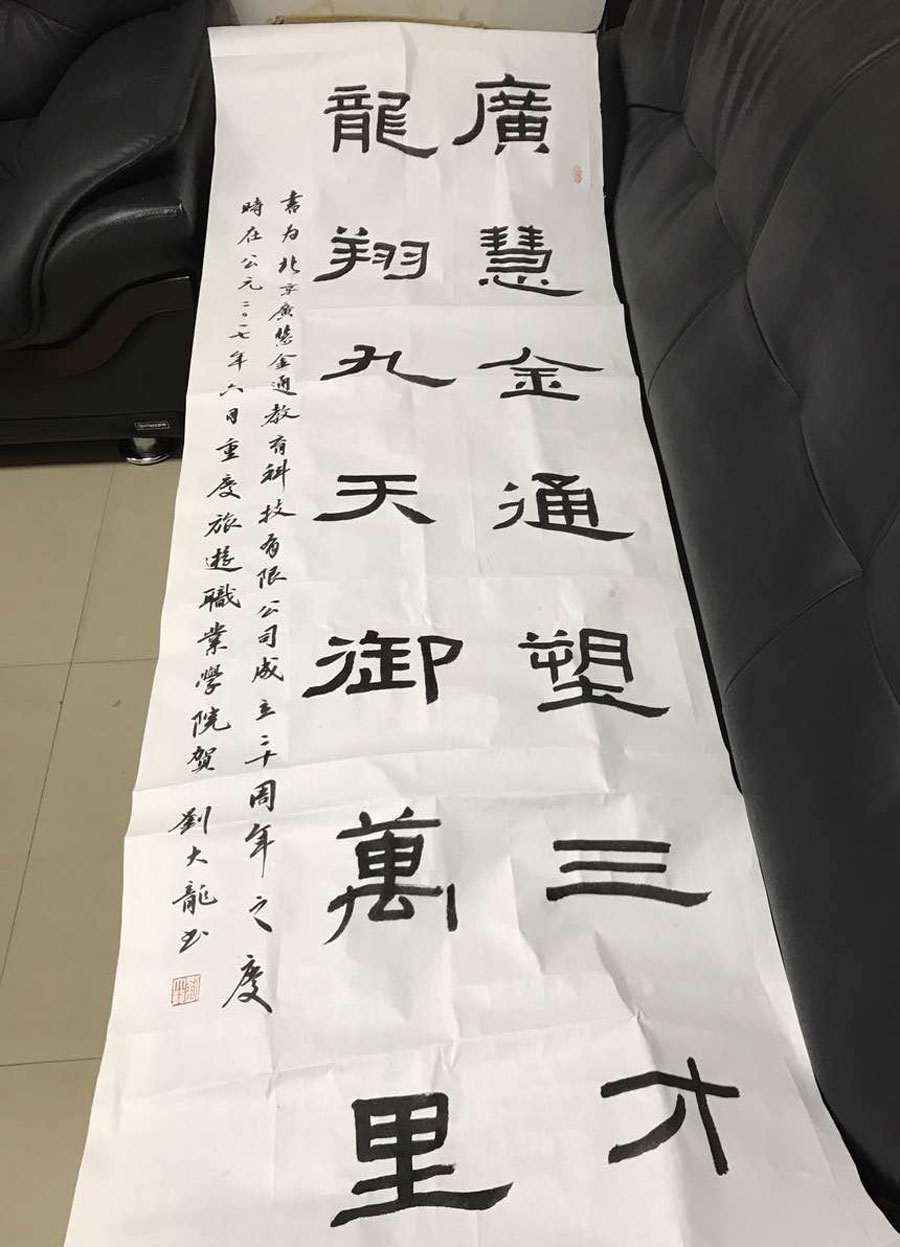 廣慧金通塑三才
龍翔九天御萬里
書为北京廣慧金通教育科技有限公司成立二十周年之慶
時在公元二〇一七年六月重慶旅遊職業學院贺 劉大龍书